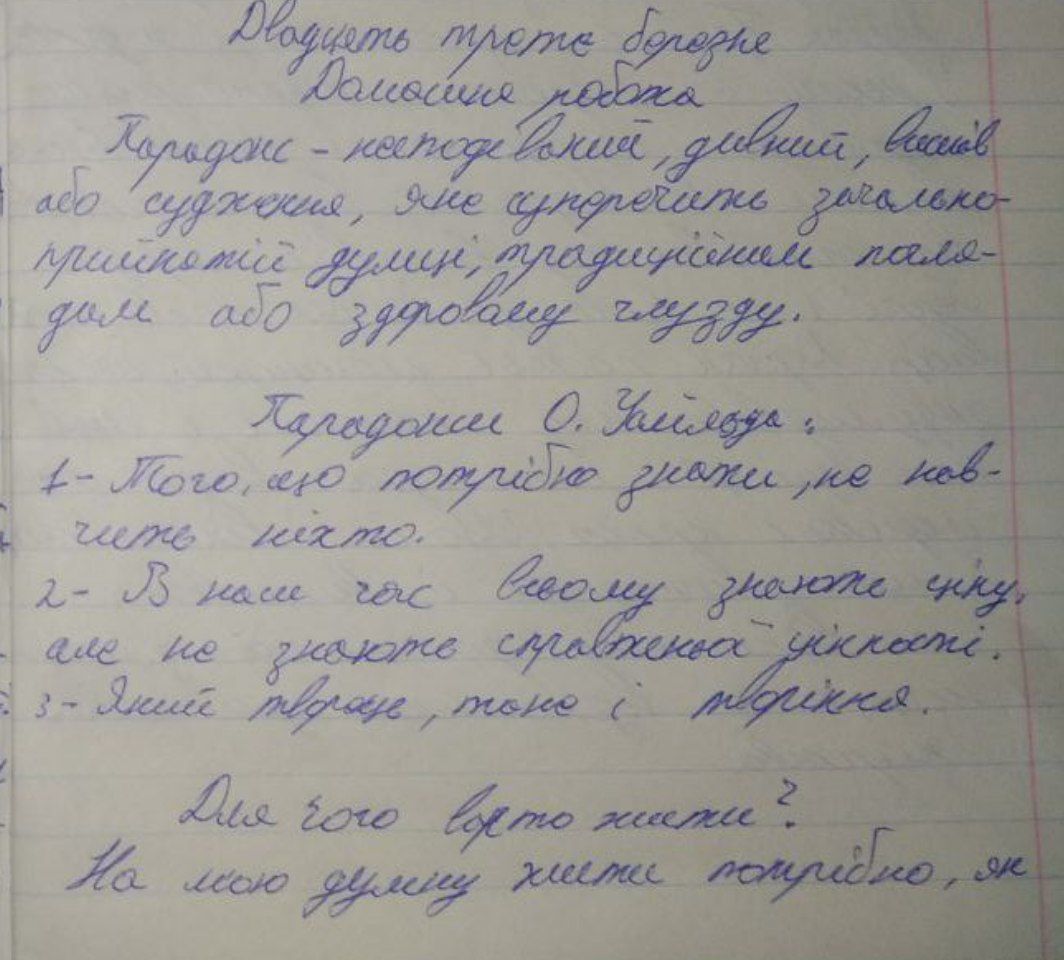 Двадцять третє березня
Домашня робота
Парадокс - несподіваний, дивний, вислів
або судження, яке суперечить загально-
прийнятій думці, традиційним погля-
дам або здоровому глузду.
Парадокси О. Уайльда:
1- Того, що потрібно знати, не нав-
чить ніхто.
2- В наш час всьому знають ціну,
але не знають справжньої цінності.
3- Який творець, таке і творіння.
Для чого варто жити?
На мою думку жити потрібно, як